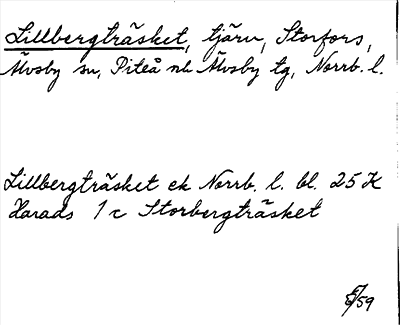 Lillbergträsket, tjärn, Storfors,
Älvsby sn, Piteå nb Älvsby tg, Norrb. l.
Lillbergträsket ek Norrb. l. bl. 25 K
Harads 1 c Storbergträsket
/59